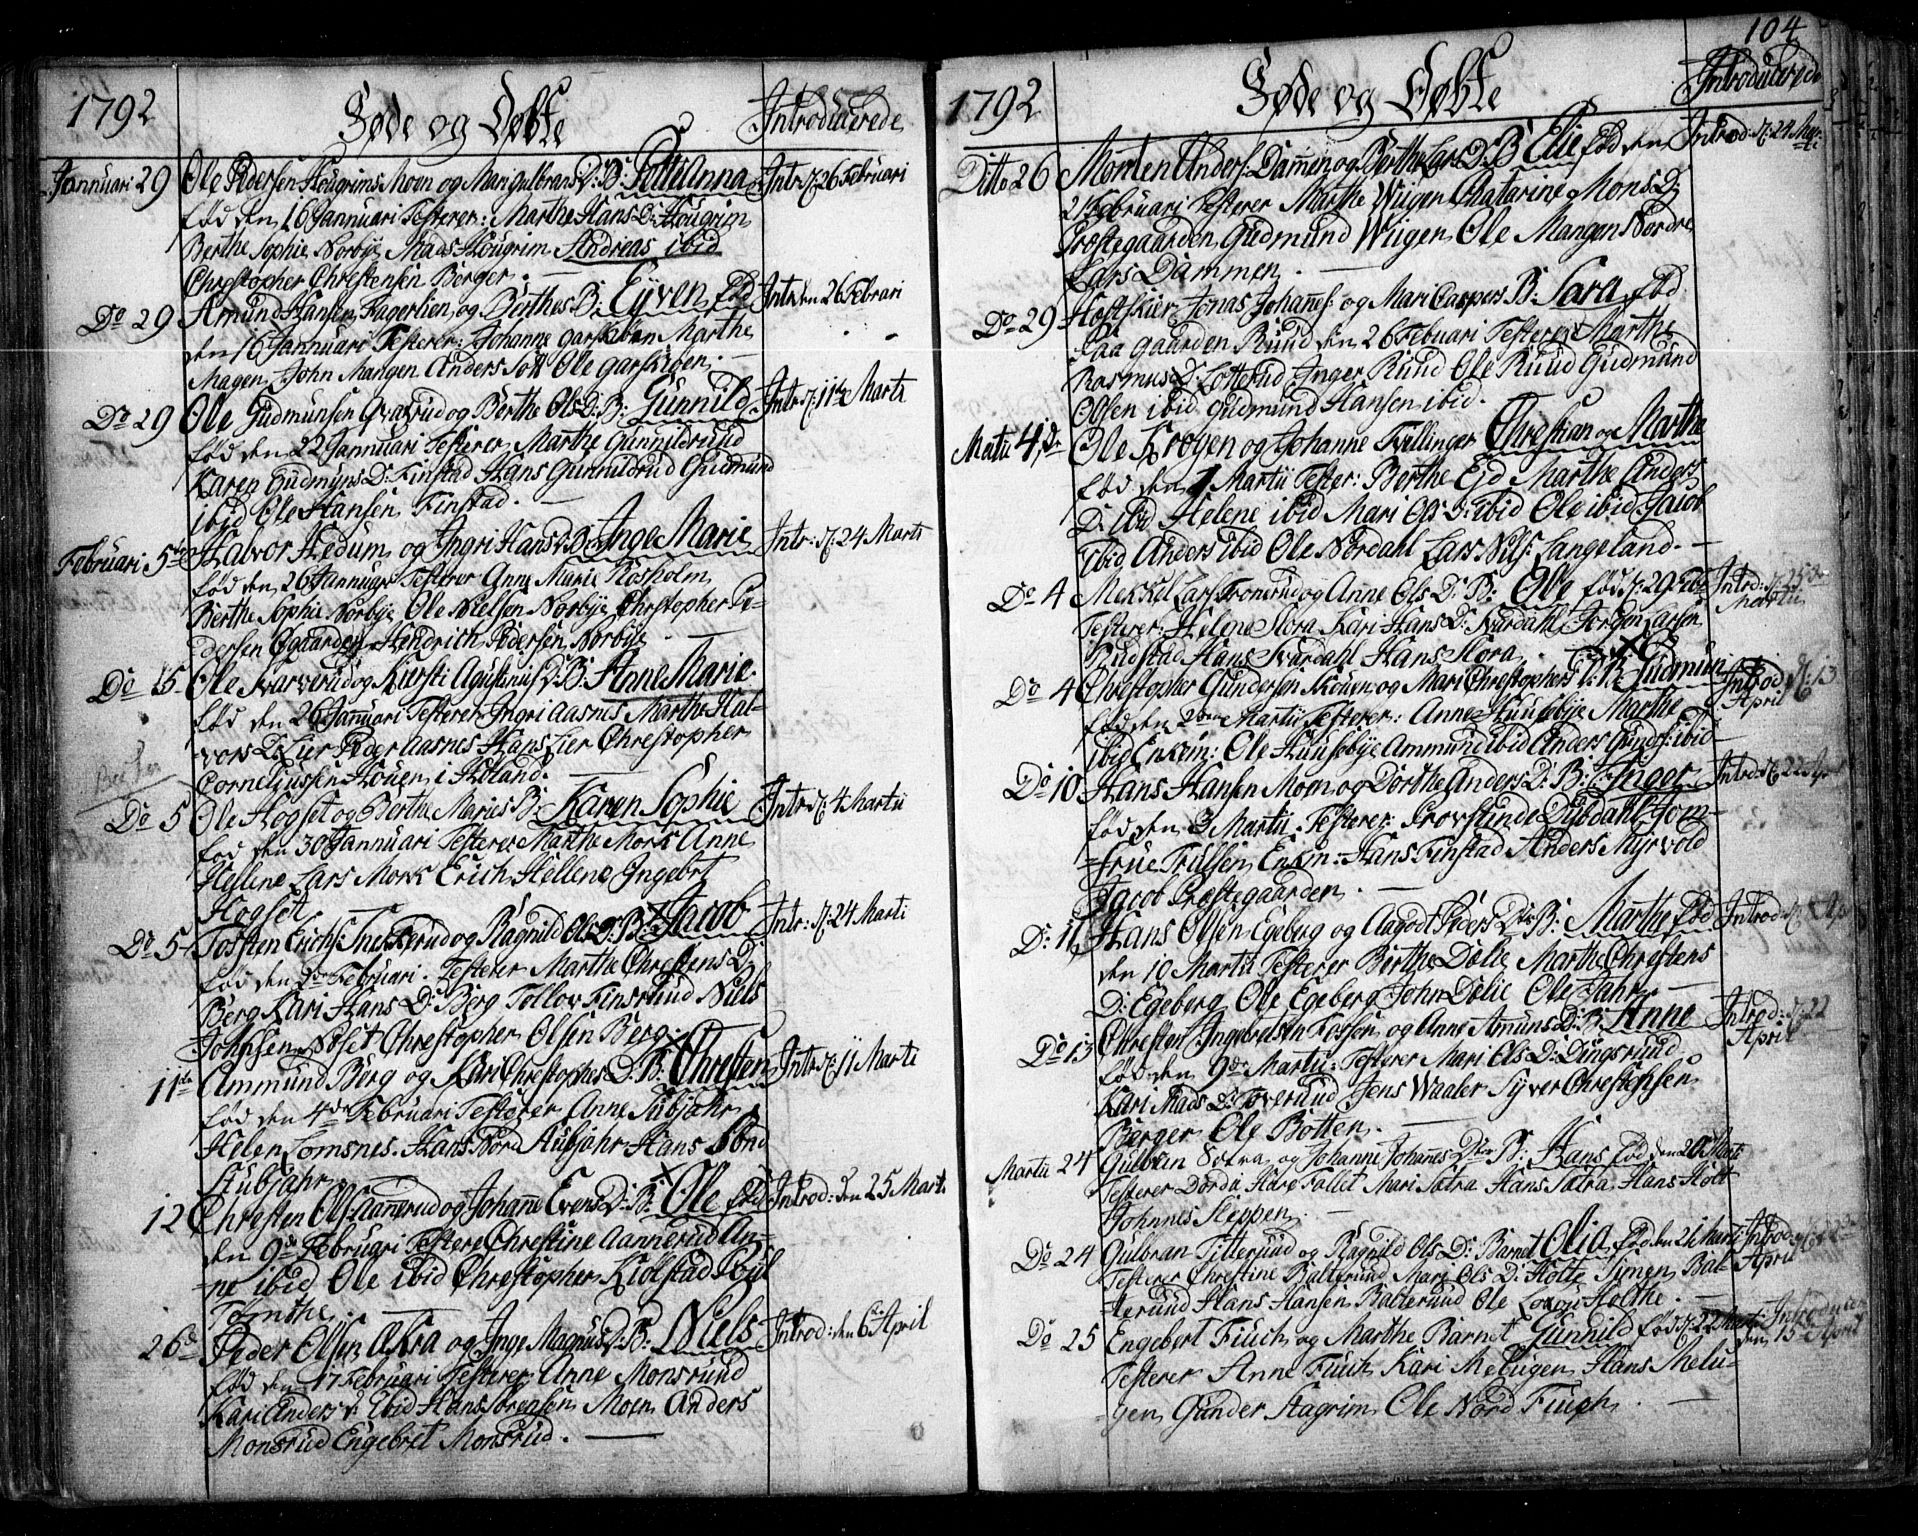 1792
Føde og Døbte
Introducerede
Jannuari 29 Ole Pedersen Hougrims Moen og Mari Gulbrans D: B: Anna Intr: 26 Februari
fød den 16 Jannuari Testerer: Marthe Hans D: Hougrim
Berthe Sophie Norbye Mads Hougrim Andreas ibid
Christopher Christensen Berger.
Do 29 Amund Hansen Fagerlien og Berthes B: Eyven fød Intr den 26 Februari
den 16 Jannuari Testerer: Johanne Garsiøen Marthe
Mangen John Mangen Anders Ole Garsiøen.
Do 29 Ole Gudmunsen og Berthe Ols D: B: Gunnild Intr: 11te Marti
fød den 22 Jannuari Testerer Marthe Gunnildrud
Karen Gudmuns D: Finstad Hans Gunnildrud Gudmund
ibid Ole Hansen Finstad.
Februari 5te Halvor Hedum og Ingri Hans D: B: Inge Marie Intr: 24 Marti
fød den 26 Jannuari Testerer Anne Marie Rosholm
Berthe Sophie Norbye Ole Nielsen Norbye Christopher Pe-
dersen Øgaarden Hendrich Pedersen Norbye
Do 5 Ole og Kiersti Agustinus D: B: Anne Marie
fød den 26 Jannuari Testerer Ingri Aasnes Marthe Hal-
vors D: Lier Peder Aasnes Hans Lier Christopher
Corneliussen Houen i Høland.
Do 5 Ole Hogset og Berthe Maries B: Karen Sophie Intr: 4 Martii
fød den 30 Jannuari Testerer Marthe Mork Anne
Hellene Lars Mork Erich Hellene Ingebrt
Hogset
Do 5 Tosten Erichs: og Ragnild Ols D: B: Jacob Intr: 24 Marti
fød den 2den Februari. Testerer Marthe Christens D:
Berg Kari Hans D: Berg Tollov Finsrud Niels
Johnsen Christopher Olsen Berg.
11te Ammund Berg og Kari Christophers D: B: Christen Intr: 11 Marti
fød den 4de Februari Testerer Anne Kubjahr
Helen Lomsnes. Hans Nord Kubjahr Hans Sønd
Kubjahr
12 Christen Ols: Aannerud og Johanne Evens D: B: Ole fød Introd: den 25 Marti
den 9de Februari Testere Christine Aannerud An-
ne ibid Ole ibid Christopher Kiolstad Poul
Tomthe.
26de Peder Olsen og Inge Magnus D: B: Niels Introd: den 6te April
fød den 17 Februari Testerer Anne Monsrud
Kari Anders D: Ibid Hans Sørensen Moen Anders
Monsrud Engebret Monsrud.
104
1792
Føde og Døbte
Introducerede
Ditto 26 Morten Anders: Dammen og Berthe Lars D: B: Elie fød den Introd: 24 Mar-
ti
21 Februari Testerer Marthe Wiigen Chatarine Mons D:
Præstegaarden Gudmund Wiigen Ole Mangen Nordre
Lars Dammen.
Do 29 Jonas Johannes: og Mari Caspers B: Sara fød
Paa Gaarden Ruud den 26 Februari Testerer Marthe
Rasmus D: Lotterud Inger Ruud Ole Ruud Gudmund
Olsen ibid Gudmund Hansen ibid.
Martii 4de Ole Krogen og Johanne Tvillinger Christian og Marthe
fød den 1 Martii Tester: Berthe Eid Marthe Anders
D: ibid Helene ibid Mari Ols D: ibid Ole ibid Jacob
ibid Anders ibid Ole Nordahl Lars Nils: Langeland.
Do 4 Mekkel Lars: og Anne Ols D: B: Ole fød 29 Feb: Introd: 25de
Martii
Testerer: Helene Flora Kari Hans D: Svardahl Jørgen Larsen
Budstad Hans Svardahl Hans Flora.
Do 4 Christopher Gundersen Skouen og Mari Christophers D: B: Gudmun Introd: 13
April
fød den 2den Martii Testerer: Anne Huusebye Marthe
ibid Enkem: Ole Huusebye Ammund ibid Anders ibid
Do 10 Hans Hansen Moen og Dorthe Anders D: B: Inger Introd: 22 April
fød den 3 Martii: Testerer: Provstinde Dybdahl Jom-
frue Trulsen Enkm: Hans Finstad Anders Myrvold
Jacob Præstegaarden.
D: 11 Hans Olsen Egeberg og Aagodt Peders Dtr B: Marthe fød Introd: Ap
den 10 Martii Testerer Berthe Dølie Marthe Christens
D: Egeberg Ole Egeberg John Dølie Ole Jahr
Do 13 Christen Ingebretsen Fossen og Anne Amuns D: B: Anne Introd: 22
April
fød den 9de Martii: Testerer Mari Ols D: Dingsrud
Kari Mads D: Toverud Jens Waaler Syver Christensen
Berger Ole Botten.
Martii 24 Gulbran Sotra og Johanne Johannes Dter B: Hans fød den 20 Marti
Testerer Dorda Mari Sotra Hans Sotra Hans Holt
Johnnes Sleppen.
Do 24 Gulbran Titterud og Ragnild Ols D: Barnet Olia fød den 21 Marti Introd:
April
Testerer Christine Balterud Mari Ols D: Holte Simen Bal-
terud Hans Hansen Balterud Ole Holthe.
Do 25 Engebert Fiuch og Marthe Barnet Gunnild fød 22 Marti: Introduce
den 15 April
Testerer Anne Fiuch Kari Melugen Hans Melu-
gen Gunder Hagrim Ole Nord Fiuch.